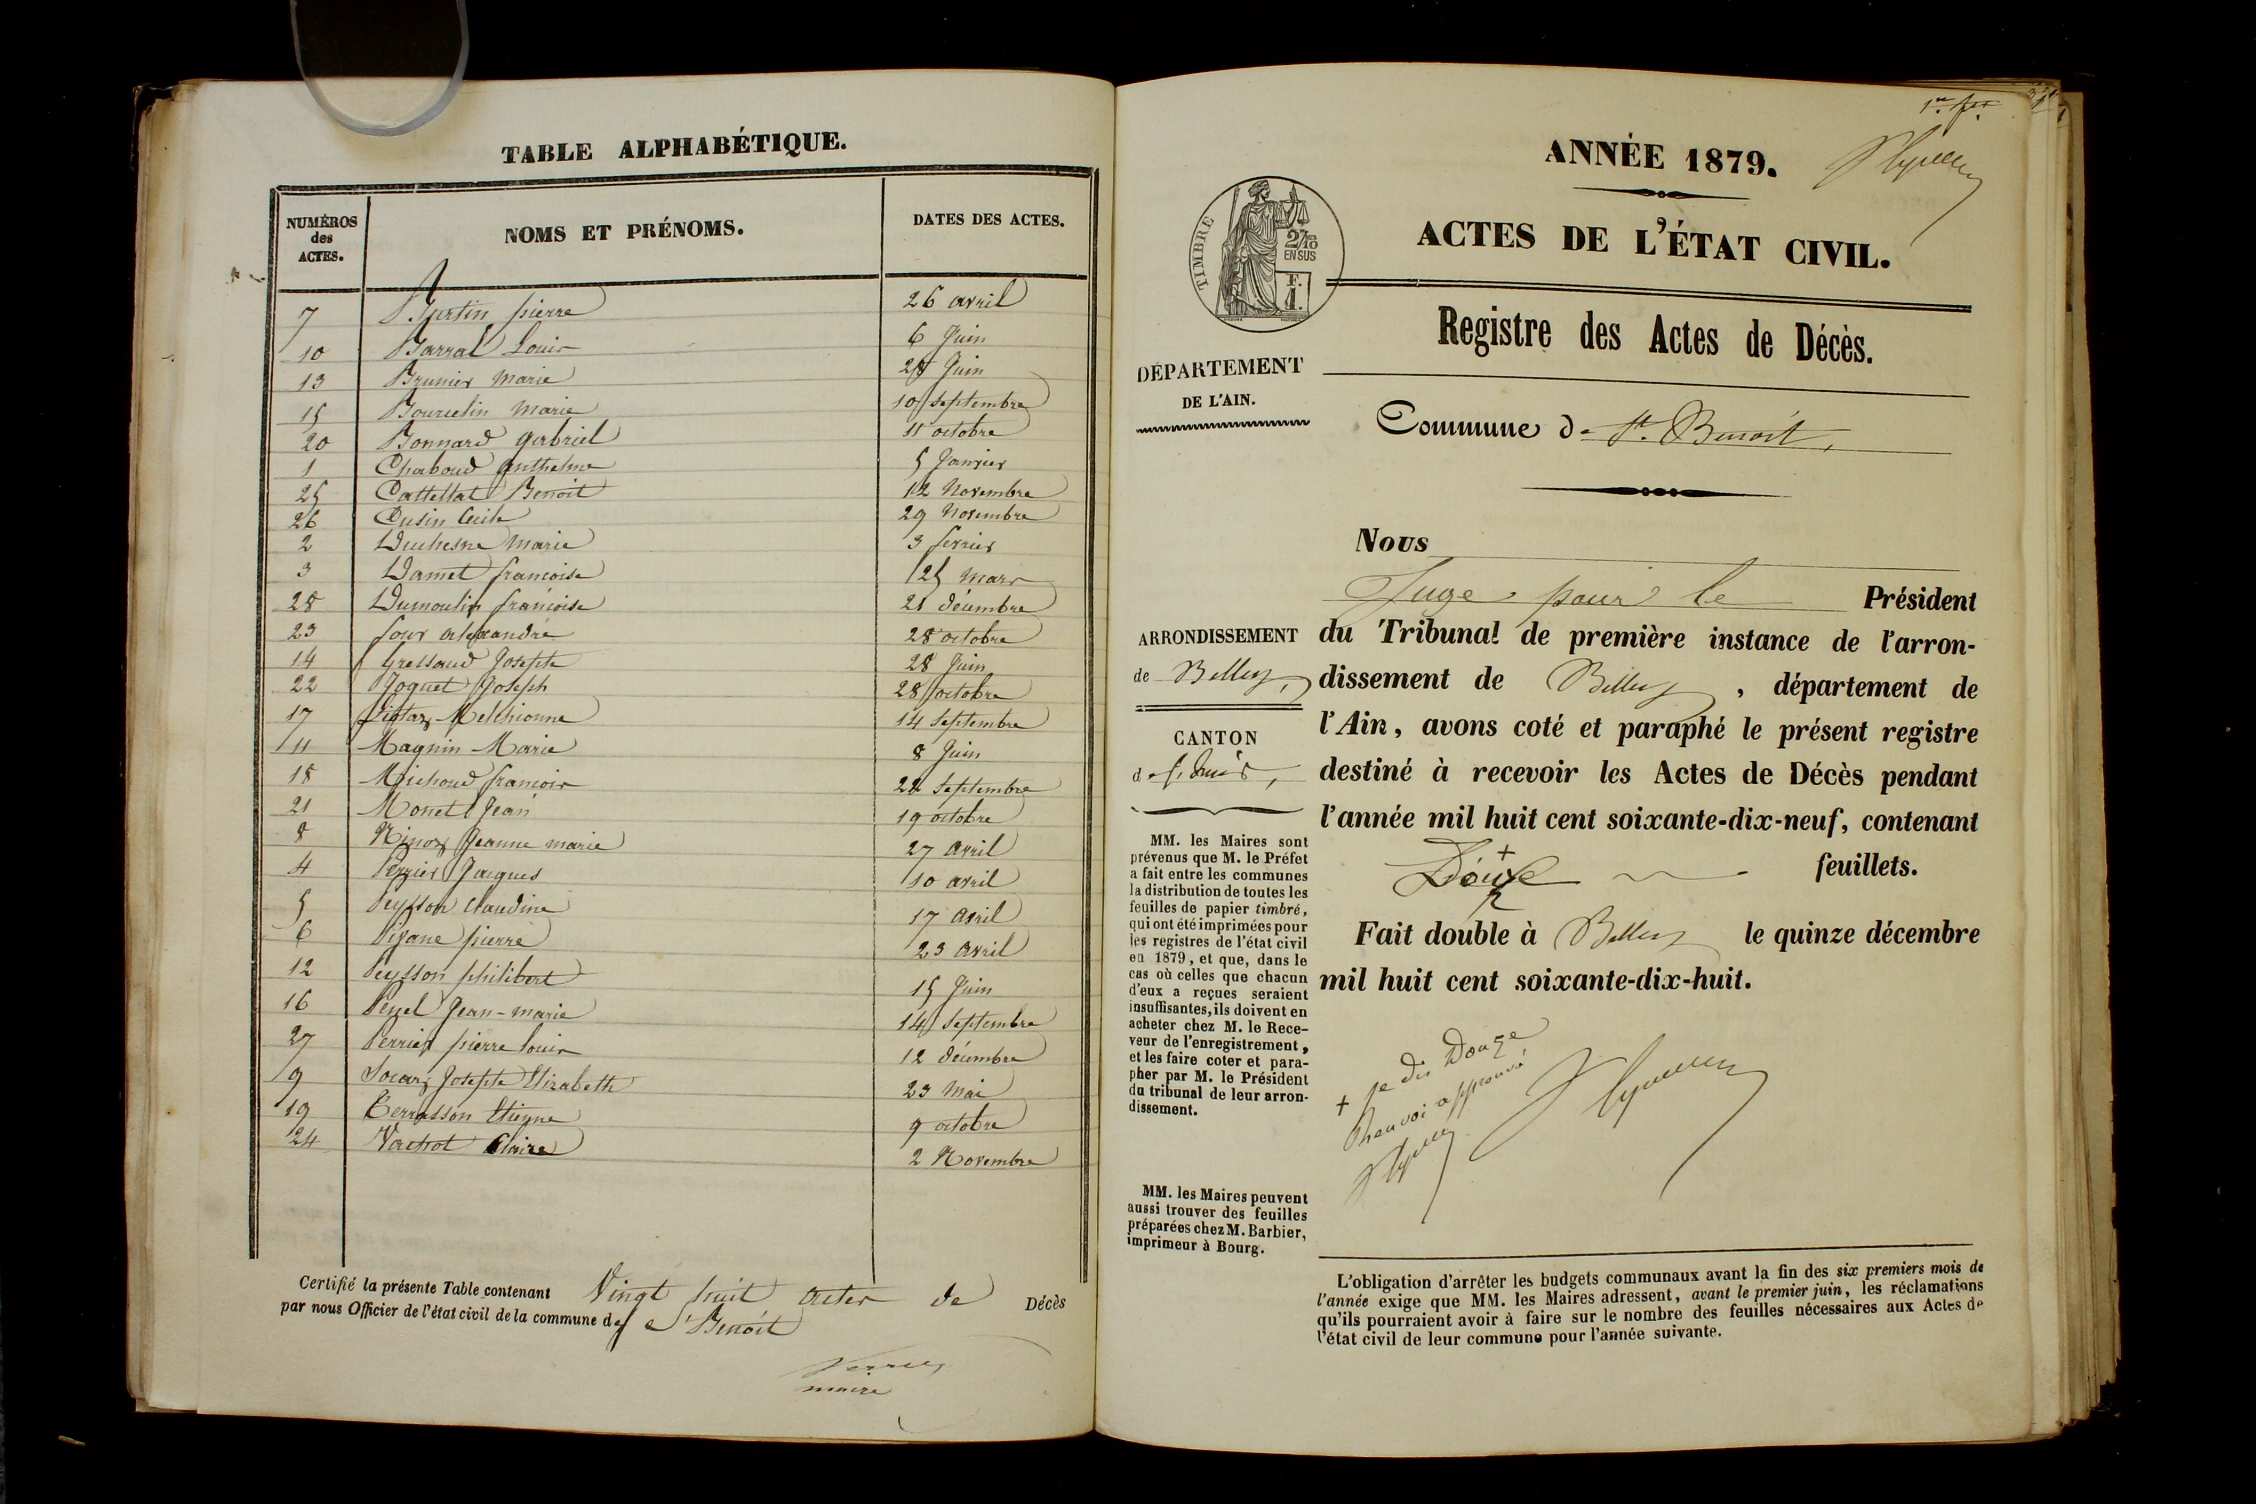 TABLE ALPHABÉTIQUE.
NUMÉROS des ACTES. NOMS ET PRÉNOMS. DATES DES ACTES.
7 pierre 26 avril
10 Barral Louis 6 Juin
13 Brunier Marie 28 Juin
15 Bourcelin Marie 10 Septembre
20 Bonnard gabriel 11 octobre
1 Chaboud Anthelme 5 Janvier
25 Cattellat Benoit 12 Novembre
26 Cusin Cécile 29 Novembre
2 Duchesne Marie 3 fevrier
3 Damet francoise 25 Mars
28 Dumoulin francoise 21 décembre
23 four alexandre 28 octobre
14 Gressaud Josephte 28 Juin
22 Joguet Joseph 28 octobre
17 Melchionne 14 Septembre
11 Magnin Marie 8 Juin
18 Michoud francois 22 Septembre
21 Monet Jean 19 octobre
8 Ninoz Jeanne marie 27 avril
4 Perrier Jacques 10 avril
5 Peysson Claudine 17 avril
6 pierre 23 avril
12 Peysson philibert 15 Juin
16 Jean-marie 14 Septembre
27 Perrier pierre louis 12 décembre
9 Josephte Elizabeth 23 Mai
19 Terrasson Etienne 9 octobre
24 Vachot Claire 2 Novembre
Certifié la présente Table contenant Vingt huit actes de Décès
par nous Officier de l'état civil de la commune de St Benoit
maire
ANNÉE 1879.
TIMBRE
2/10 EN SUS
F. 1.
ACTES DE L'ÉTAT CIVIL.
Registre des Actes de Décès.
DÉPARTEMENT
DE L'AIN.
Commune de St. Benoit,
ARRONDISSEMENT
de Belley,
CANTON
d
MM. les Maires sont
prévenus que M. le Préfet
a fait entre les communes
la distribution de toutes les
feuilles de papier timbré,
qui ont été imprimées pour
les registres de l'état civil
en 1879, et que, dans le
cas où celles que chacun
d'eux a reçues seraient
insuffisantes, ils doivent en
acheter chez M. le Rece-
veur de l'enregistrement,
et les faire coter et para-
pher par M. le Président
du tribunal de leur arron-
dissement.
MM. les Maires peuvent
aussi trouver des feuilles
préparées chez M. Barbier,
imprimeur à Bourg.
Nous
Juge pour le Président
du Tribunal de première instance de l'arron-
dissement de Belley, département de
l'Ain, avons coté et paraphé le présent registre
destiné à recevoir les Actes de Décès pendant
l'année mil huit cent soixante-dix-neuf, contenant
Douze + feuillets.
Fait double à Belley le quinze décembre
mil huit cent soixante-dix-huit.
+ je dis Douze
Renvoi approuvé
L'obligation d'arrêter les budgets communaux avant la fin des six premiers mois de
l'année exige que MM. les Maires adressent, avant le premier juin, les réclamations
qu'ils pourraient avoir à faire sur le nombre des feuilles nécessaires aux Actes de
l'état civil de leur commune pour l'année suivante.